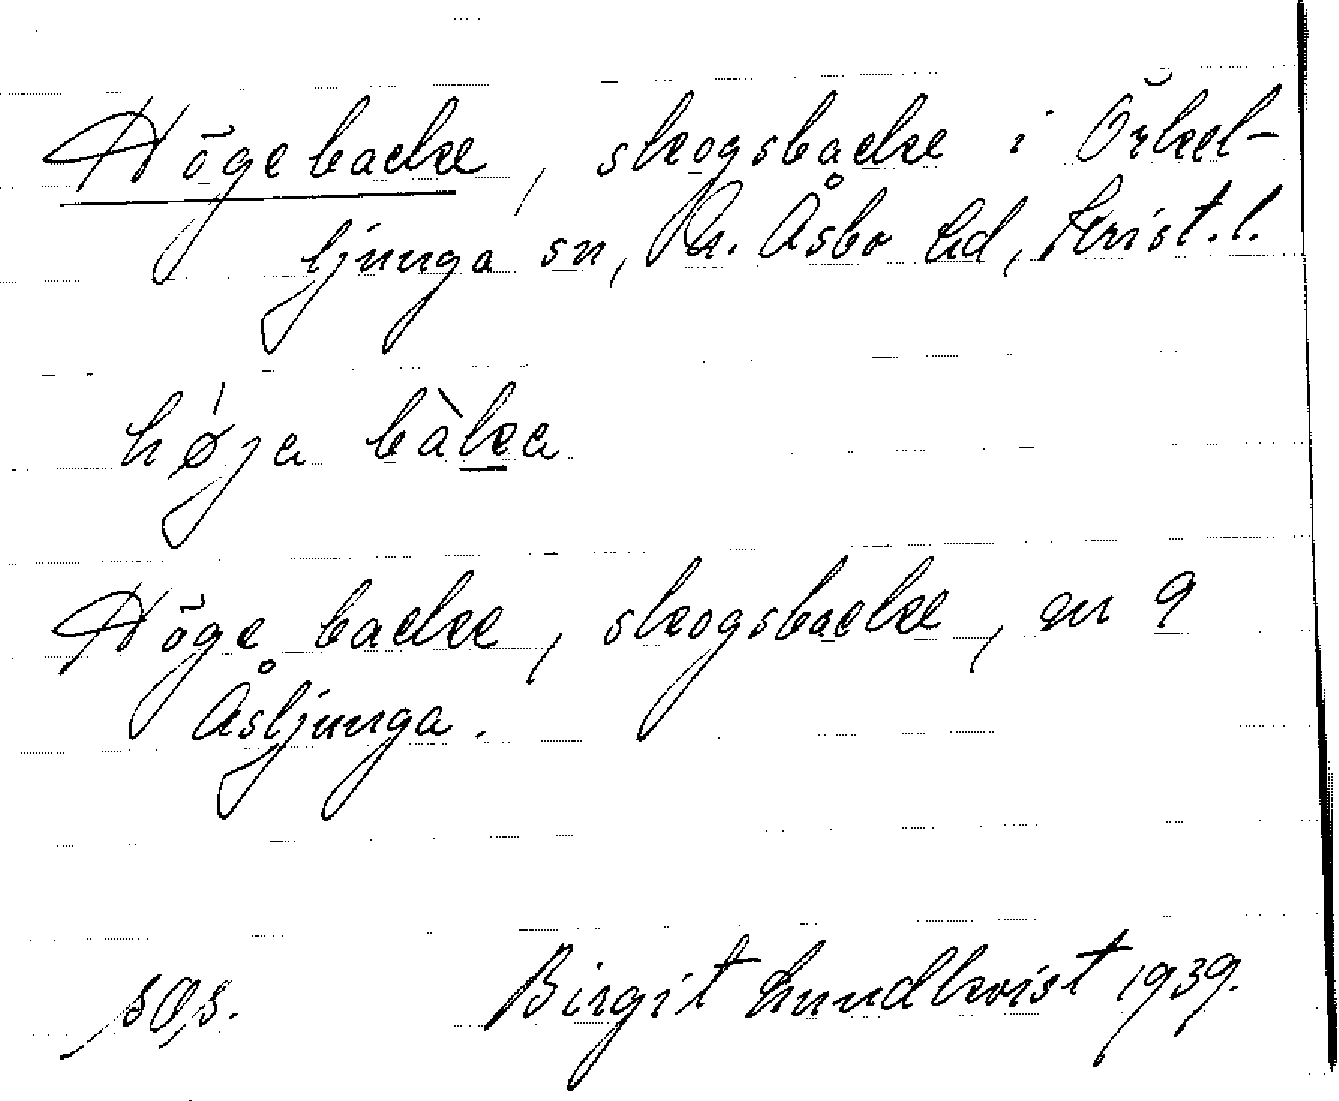 Högebacke, skogsbacke i Örkel-
ljunga sn, N. Åsbo hd, Krist. l.
hø̍ja bàka
Höge backe, skogsbacke, nr 9
Åsljunga.
Birgit Lundkvist 1939.